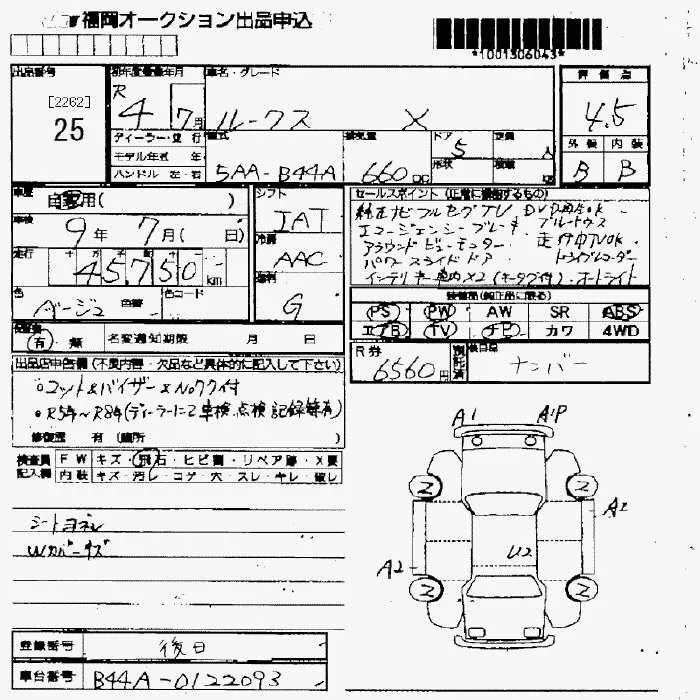 福岡オークション出品申込
*1001306043*
出品番号
[2262]
25
初年度登録年月
R 4 7月
車名・グレード
ルークス X
評価点
4.5
外装 内装
B B
ディーラー・並行
モデル年式 年
ハンドル 左・右
型式
5AA-B44A
排気量
660 cc
ドア 5
形状
定員 人
積載
車歴
自家用( )
車検
9年 7月( 日)
走行
45,750 km
色
ベージュ
色替
色コード
シフト
IAT
冷房
AAC
燃料
G
セールスポイント (正常に機能するもの)
純正ナビ フルセグTV DVD再生OK
エマージェンシーブレーキ ブルートゥース
アラウンドビューモニター 走行中TVOK
パワースライドドア ドライブレコーダー
インテリキー車内×2(キータグ付)・オートライト
装備品(純正品に限る)
PS PW AW SR ABS
エアB TV ナビ カワ 4WD
保証書
有 無 名変通知期限 月 日
R券
6560円
別預託済
後日品
ナンバー
出品店申告欄 (不良内容・欠品など具体的に記入して下さい)
○マット&バイザー&Noワク付
○R5年~R8年(ディーラーにて車検、点検記録簿有)
修復歴 有 (箇所 )
検査員記入欄
FW キズ・飛石・ヒビ割・リペア跡・X要
内装 キズ・汚レ・コゲ・穴・スレ・キレ・破レ
シートヨゴレ
Wカバーキズ
A1 A1P
A2
A2
U2
登録番号
後日
車台番号
B44A-0122093